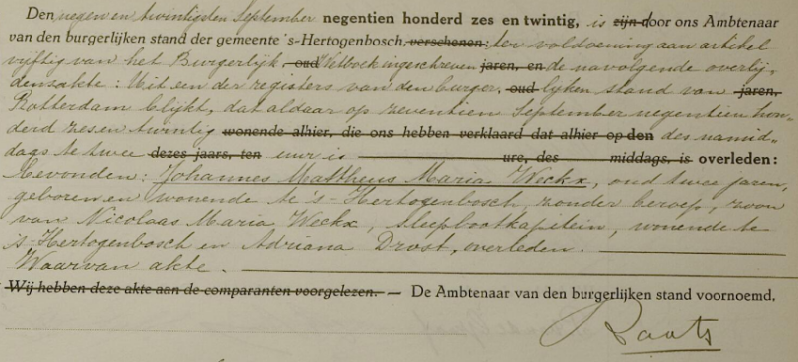 Den negen en twintigsten September negentien honderd zes en twintig, is zijn door ons Ambtenaar
van den burgerlijken stand der gemeente 's-Hertogenbosch, verschenen: ter voldoening aan artikel
vijftig van het Burgerlijk oud Wetboek ingeschreven jaren, en de navolgende overlij-
densakte: Uit een der registers van den burger- oud lyken stand van jaren,
Rotterdam blijkt, dat aldaar op zeventien September negentien hon-
derd zes en twintig wonende alhier, die ons hebben verklaard dat alhier op den des namid-
dags te twee dezes jaars, ten uur is ure, des middags, is overleden:
bevonden: Johannes Mattheus Maria Weckx, oud twee jaren,
geboren en wonende te 's-Hertogenbosch, zonder beroep, zoon
van Nicolaas Maria Weckx, sleepbootkapitein, wonende te
's-Hertogenbosch en Adriana Drost, overleden.
Waarvan akte.
Wij hebben deze akte aan de comparanten voorgelezen. — De Ambtenaar van den burgerlijken stand voornoemd,
Raats